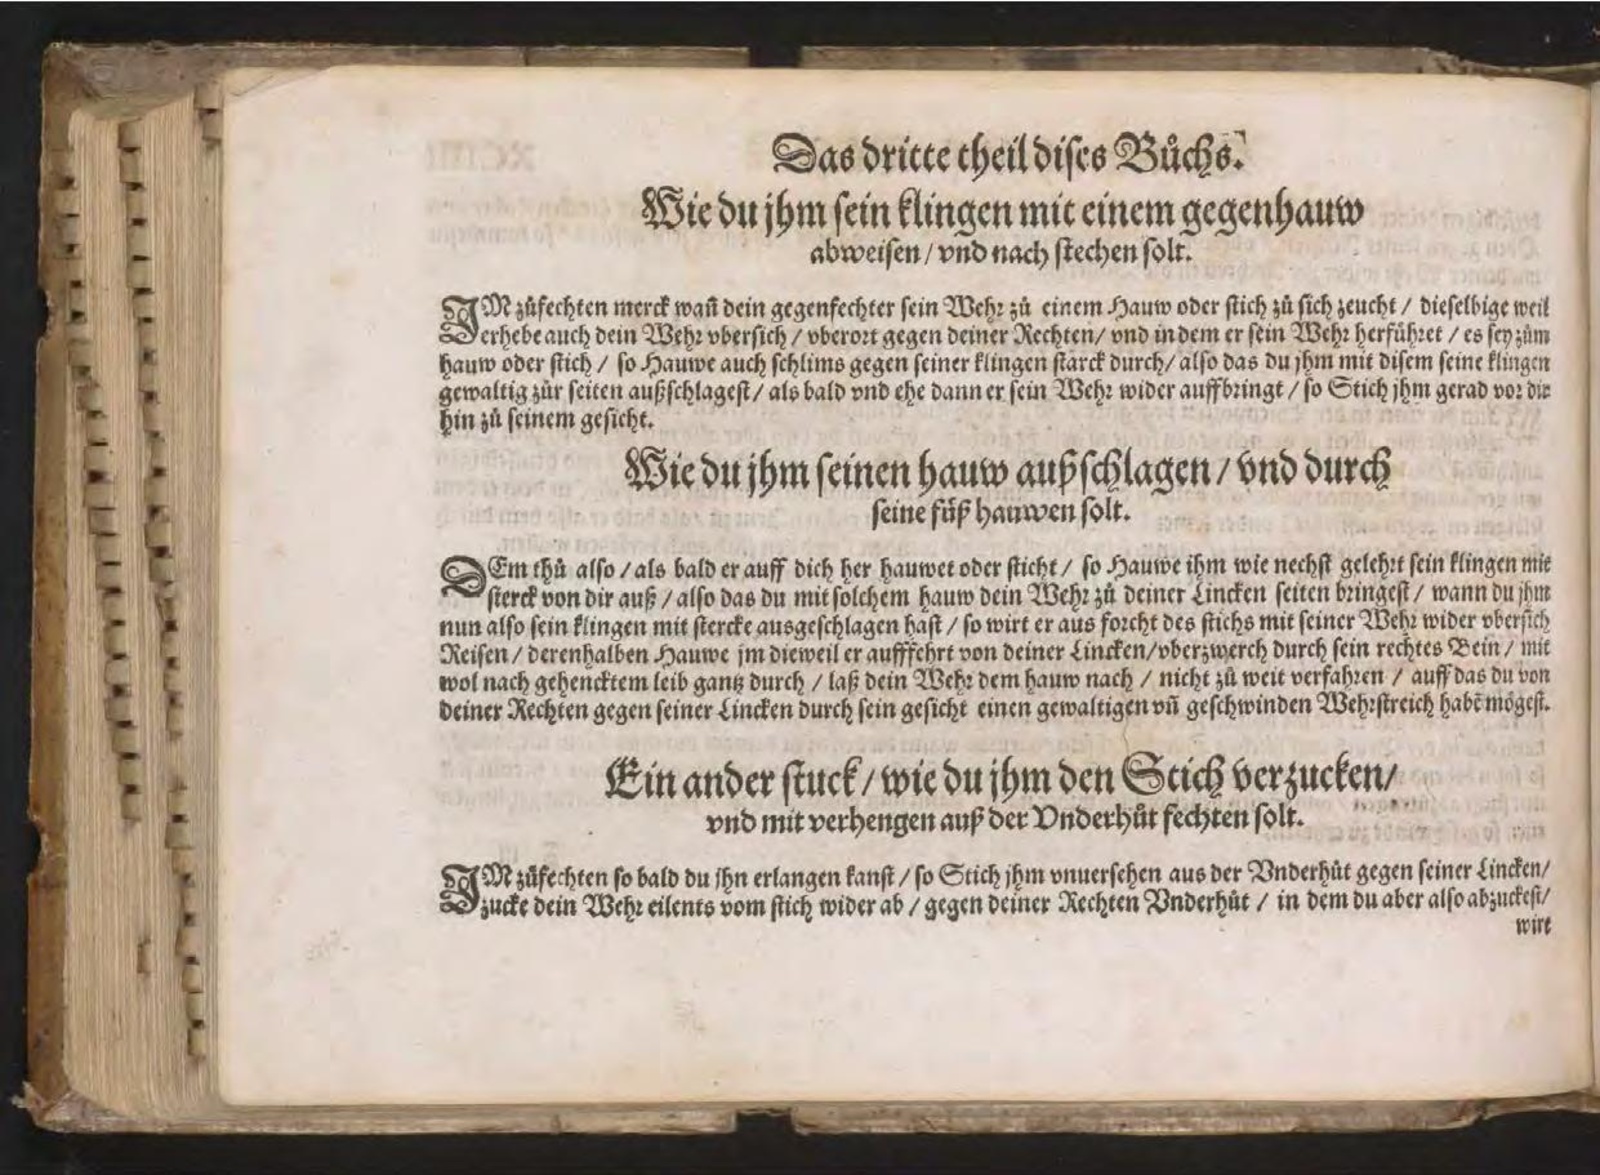 Das dritte theil dises Bůchs.
Wie du jhm sein klingen mit einem gegenhauw
abweisen / vnd nach stechen solt.
IM zůfechten merck wañ dein gegenfechter sein Wehr zů einem Hauw oder stich zů sich zeucht / dieselbige weil
erhebe auch dein Wehr vbersich / vberort gegen deiner Rechten / vnd in dem er sein Wehr herführet / es sey zům
hauw oder stich / so Hauwe auch schlims gegen seiner klingen starck durch / also das du jhm mit disem seine klingen
gewaltig zůr seiten außschlagest / als bald vnd ehe dann er sein Wehr wider auffbringt / so Stich jhm gerad vor dir
hin zů seinem gesicht.
Wie du jhm seinen hauw außschlagen / vnd durch
seine füß hauwen solt.
DEm thů also / als bald er auff dich her hauwet oder sticht / so Hauwe ihm wie nechst gelehrt sein klingen mit
sterck von dir auß / also das du mit solchem hauw dein Wehr zů deiner Lincken seiten bringest / wann du jhm
nun also sein klingen mit stercke ausgeschlagen hast / so wirt er aus forcht des stichs mit seiner Wehr wider vbersich
Reisen / derenhalben Hauwe jm dieweil er aufffehrt von deiner Lincken / vberzwerch durch sein rechtes Bein / mit
wol nach gehencktem leib gantz durch / laß dein Wehr dem hauw nach / nicht zů weit verfahren / auff das du von
deiner Rechten gegen seiner Lincken durch sein gesicht einen gewaltigen vñ geschwinden Wehrstreich habẽ mögest.
Ein ander stuck / wie du jhm den Stich verzucken /
vnd mit verhengen auß der Vnderhůt fechten solt.
IM zůfechten so bald du jhn erlangen kanst / so Stich jhm vnuersehen aus der Vnderhůt gegen seiner Lincken /
zucke dein Wehr eilents vom stich wider ab / gegen deiner Rechten Vnderhůt / in dem du aber also abzuckest /
wirt